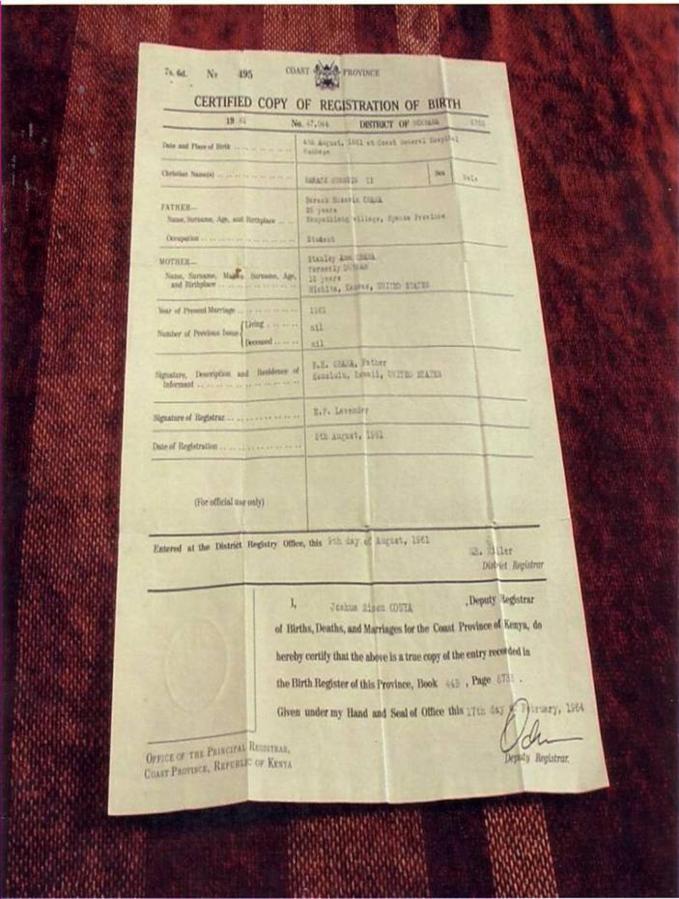 7s. 6d. No 495 COAST PROVINCE
CERTIFIED COPY OF REGISTRATION OF BIRTH
19 No. 47,044 DISTRICT OF
Date and Place of Birth 4th August, 1961 at Coast General Hospital
Christian Name(s) BARACK HUSSEIN II Sex Male
FATHER— Barack Hussein OBAMA
Name, Surname, Age, and Birthplace 25 years
village, Province
Occupation Student
MOTHER— Stanley Ann OBAMA
Name, Surname, Maiden Surname, Age, formerly DUNHAM
and Birthplace 18 years
Wichita, Kansas, UNITED STATES
Year of Present Marriage 1961
Number of Previous Issue { Living nil
Deceased nil
Signature, Description and Residence of B.H. OBAMA, Father
Informant Honolulu, Hawaii, UNITED STATES
Signature of Registrar E.F. Lavender
Date of Registration August, 1961
(For official use only)
Entered at the District Registry Office, this 9th day of August, 1961
Miller
District Registrar
I, Joshua Simon ODUYA, Deputy Registrar
of Births, Deaths, and Marriages for the Coast Province of Kenya, do
hereby certify that the above is a true copy of the entry recorded in
the Birth Register of this Province, Book 44B, Page
Given under my Hand and Seal of Office this 17th day of February, 1964
Deputy Registrar.
OFFICE OF THE PRINCIPAL REGISTRAR,
COAST PROVINCE, REPUBLIC OF KENYA